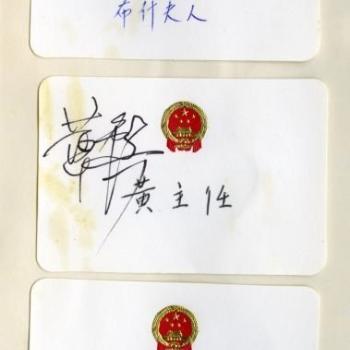 布什夫人
黄主任